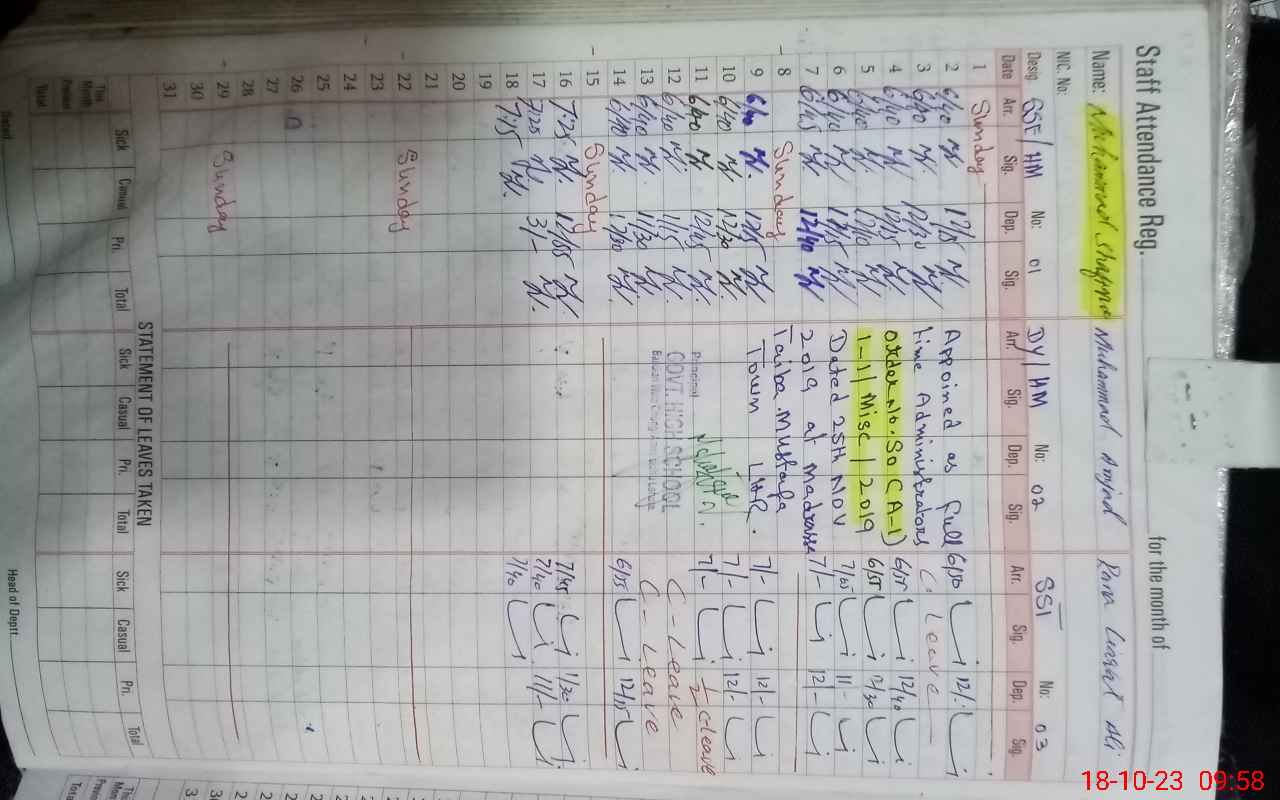 Staff Attendance Reg. for the month of
Name: Muhammad Shafique Muhammad Amjad Rana Liaqat Ali
NIC. No:
Desig. SSE/HM No: 01 DY/HM No: 02 SST No: 03
Date Arr. Sig. Dep. Sig. Arr. Sig. Dep. Sig. Arr. Sig. Dep. Sig.
1 Sunday
2 6/40 12/15 Appoined as full 6/50 12/-
3 6/40 12/30 time Administrators C. Leave
4 6/40 12/15 order No. SO (A-I) 6/55 12/40
5 6/40 12/10 1-1/Misc/2019 6/55 12/30
6 6/40 12/15 Dated 25th NOV 7/05 11/-
7 6/45 12/40 2019 at Madrassa 7/- 12/-
8 Sunday Taiba Mustafa
9 6/40 12/15 Town LHR. 7/- 12/-
10 6/40 12/30 7/- 12/-
11 6/40 12/05 Principal 7/- 1/2 C-leave
12 6/40 1/15 GOVT. HIGH SCHOOL C-Leave
13 6/40 11/30 C-Leave
14 6/40 12/00 6/55 12/15
15 Sunday
16 7:25 12/55 7/45 1/30
17 7/25 3/- 7/40 11/-
18 7:15 7/40
19
20
21
22 Sunday
23
24
25
26
27
28
29 Sunday
30
31
STATEMENT OF LEAVES TAKEN
Sick Casual Pri. Total Sick Casual Pri. Total Sick Casual Pri. Total
This Month
Present
Total
Dated Head of Deptt.
18-10-23 09:58